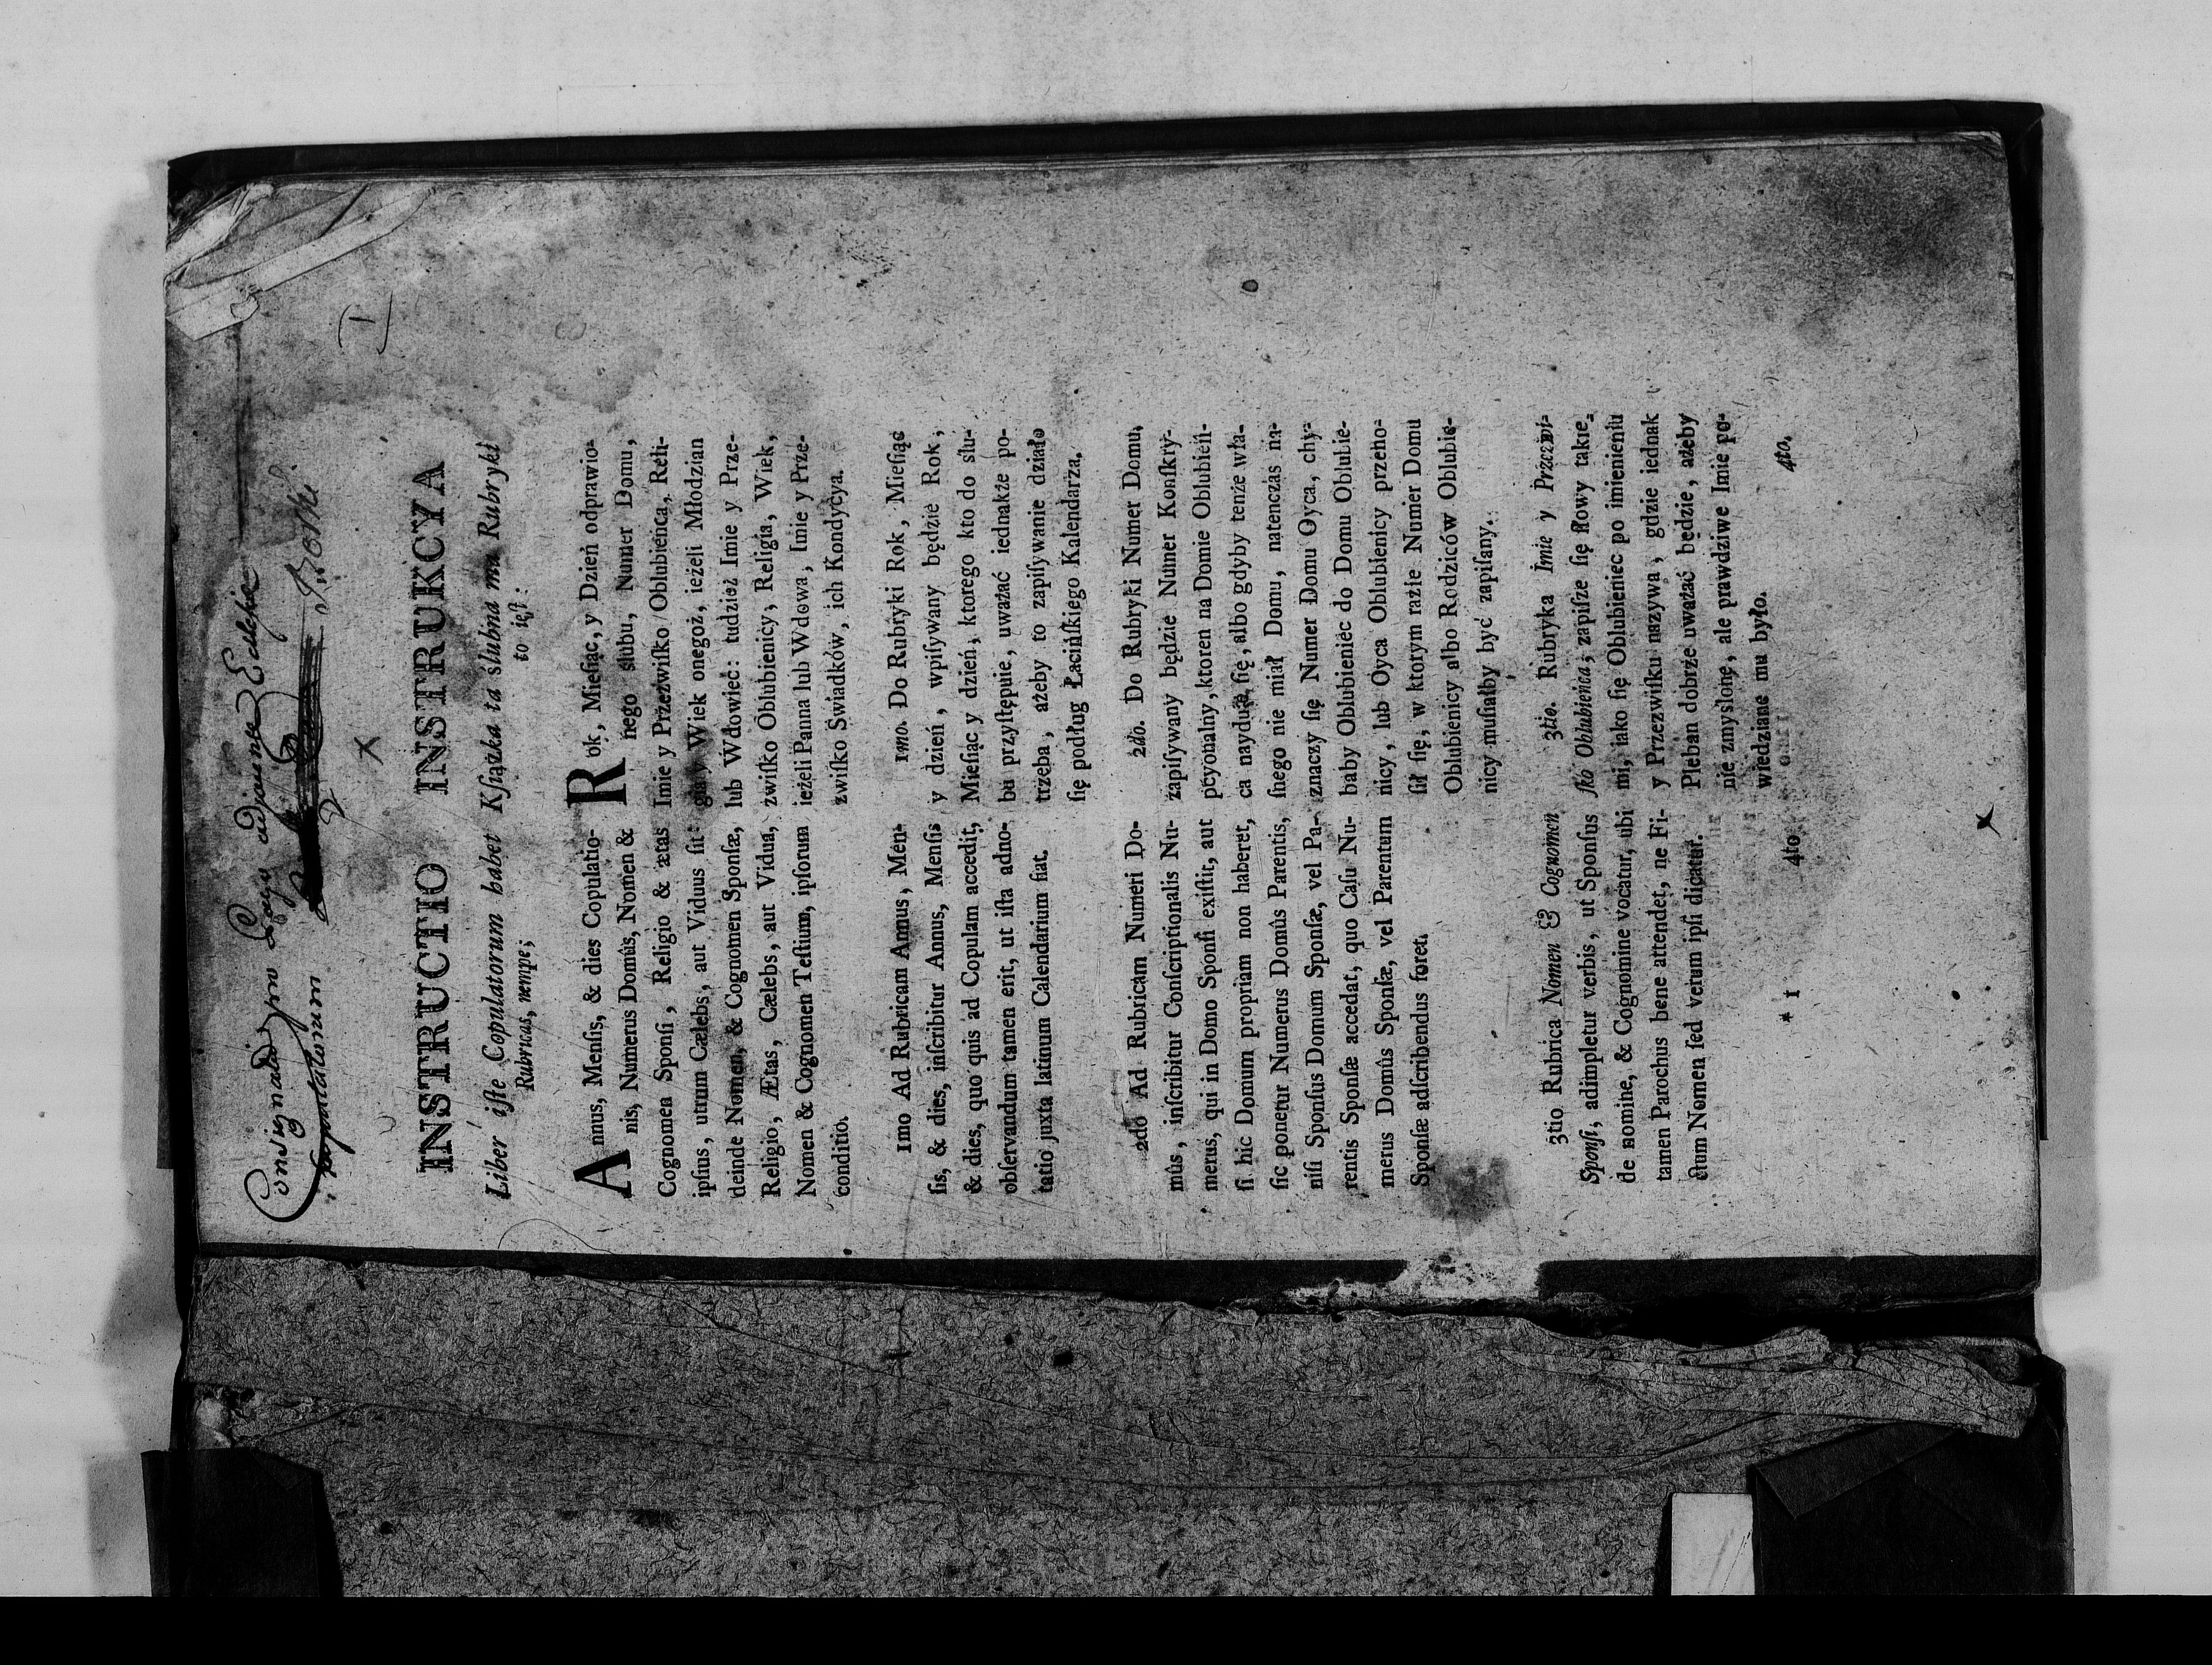 Consignatio pro
Copulatorum
Boski.
I
INSTRUCTIO
Liber iſte Copulatorum habet
Rubricas, nempe;
Annus, Menſis, & dies Copulatio-
nis, Numerus Domûs, Nomen &
Cognomen Sponſi, Religio & ætas
ipſius, utrum Cælebs, aut Viduus ſit:
deinde Nomen, & Cognomen Sponſæ,
Religio, Ætas, Cælebs, aut Vidua,
Nomen & Cognomen Teſtium, ipſorum
conditio.
1mo Ad Rubricam Annus, Men-
ſis, & dies, inſcribitur Annus, Menſis
& dies, quo quis ad Copulam accedit,
obſervandum tamen erit, ut iſta adno-
tatio juxta latinum Calendarium fiat.
2dò Ad Rubricam Numeri Do-
mús, inſcribitur Conſcriptionalis Nu-
merus, qui in Domo Sponſi exiſtit, aut
ſi hic Domum propriam non haberet,
ſic ponetur Numerus Domûs Parentis,
niſi Sponſus Domum Sponſæ, vel Pa-
rentis Sponſæ accedat, quo Caſu Nu-
merus Domûs Sponſæ, vel Parentum
Sponſæ adſcribendus foret.
3tio Rubrica Nomen & Cognomen
Sponſi, adimpletur verbis, ut Sponſus
de nomine, & Cognomine vocatur, ubi
tamen Parochus bene attendet, ne Fi-
ctum Nomen ſed verum ipſi dicatur.
* 1
4to
INSTRUKCYA
Kſiążka ta ślubna ma Rubryki
to ieſt:
Rok, Mieſiąc, y Dzień odprawio-
nego ślubu, Numer Domu,
Imie y Przezwiſko Oblubieńca, Reli-
gia y Wiek onegoż, ieżeli Młodzian
lub Wdowiec: tudzież Imie y Prze-
zwiſko Oblubienicy, Religia, Wiek,
ieżeli Panna lub Wdowa, Imie y Prze-
zwiſko Swiadków, ich Kondycya.
1mo. Do Rubryki Rok, Mieſiąc
y dzień, wpiſywany będzie Rok,
Mieſiąc y dzień, ktorego kto do ślu-
bu przyſtępuie, uważać iednakże po-
trzeba, ażeby to zapiſywanie działo
ſię podług Łacińſkiego Kalendarza.
2do. Do Rubryki Numer Domu,
zapiſywany będzie Numer Konſkry-
pcyonalny, ktoren na Domie Oblubień-
ca nayduie ſię, albo gdyby tenże wła-
ſnego nie miał Domu, natenczas na-
znaczy ſię Numer Domu Oyca, chy-
baby Oblubieniec do Domu Oblubie-
nicy, lub Oyca Oblubienicy przeho-
ſił ſię, w ktorym razie Numer Domu
Oblubienicy albo Rodziców Oblubie-
nicy muſiałby być zapiſany.
3tio. Rubryka Imie y Przezwi-
ſko Oblubieńca, zapiſze ſię ſłowy takie-
mi, iako ſię Oblubieniec po imienieniu
y Przezwiſku nazywa, gdzie iednak
Pleban dobrze uważać będzie, ażeby
nie zmyslone, ale prawdziwe Imie po-
wiedziane mu było.
4to.